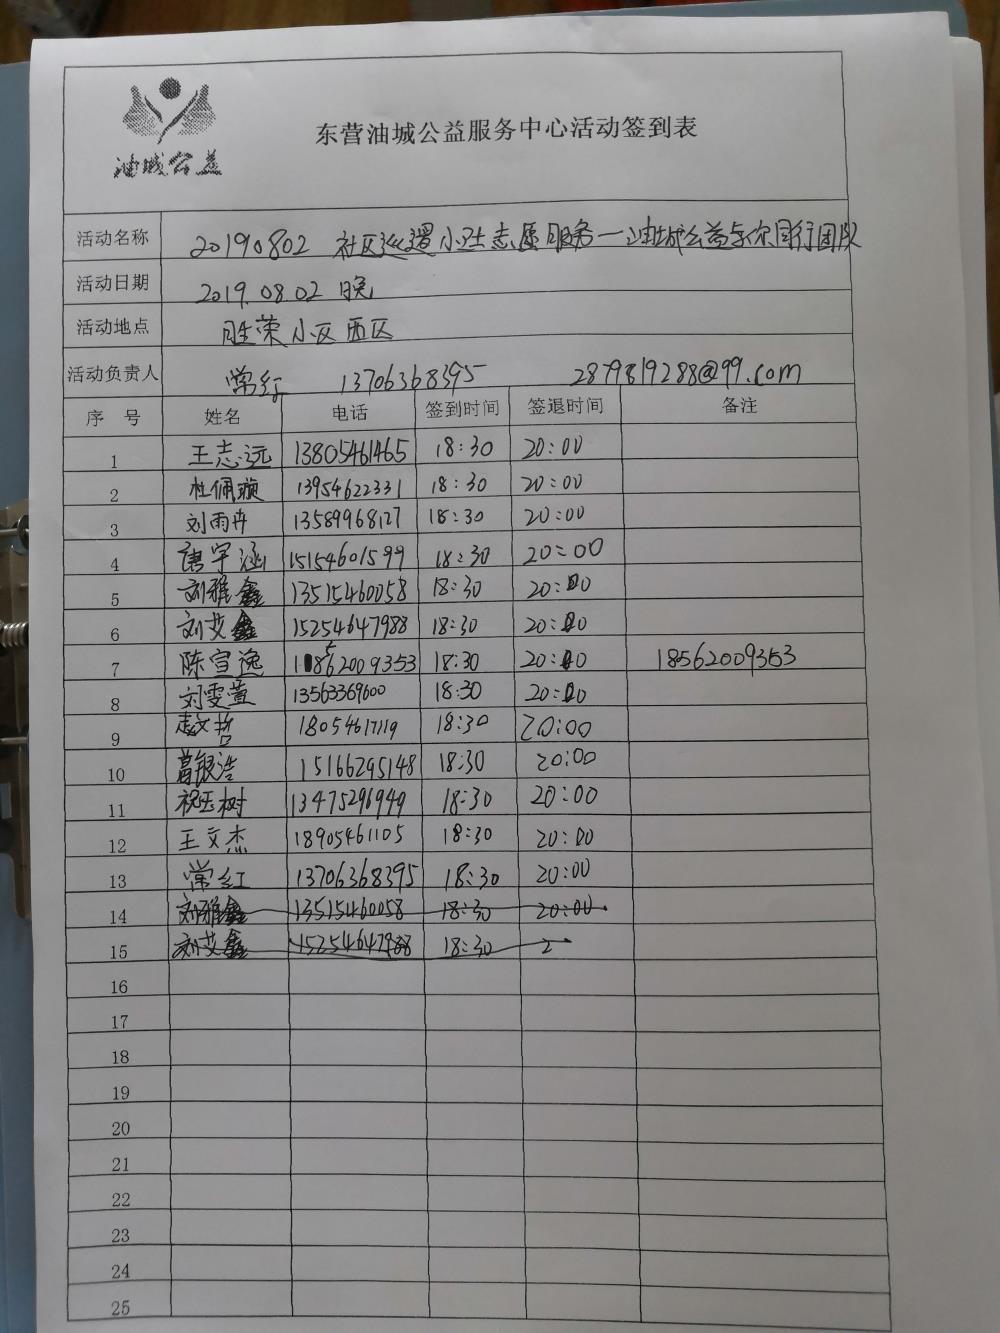 油城公益
东营油城公益服务中心活动签到表
活动名称 20190802 社区巡逻小卫士志愿服务—油城公益与你同行团队
活动日期 2019.08.02 晚
活动地点 胜荣小区西区
活动负责人 常红 13706368395 287981928​8@99.com
序 号 姓名 电话 签到时间 签退时间 备注
1 王志远 13805461465 18:30 20:00
2 杜佩璇 13954622331 18:30 20:00
3 刘雨卉 13589968127 18:30 20:00
4 唐宇涵 15154601599 18:30 20:00
5 刘雅鑫 13515460058 18:30 20:00
6 刘艾鑫 15254647988 18:30 20:00
7 陈宣逸 18562009353 18:30 20:00 18562009353
8 刘雯萱 13563369600 18:30 20:00
9 赵文哲 18054617119 18:30 20:00
10 葛银浩 15166295148 18:30 20:00
11 祝玉树 13475296949 18:30 20:00
12 王文杰 18905461105 18:30 20:00
13 常红 13706368395 18:30 20:00
14 刘雅鑫 13515460058 18:30 20:00
15 刘艾鑫 15254647988 18:30 2
16
17
18
19
20
21
22
23
24
25